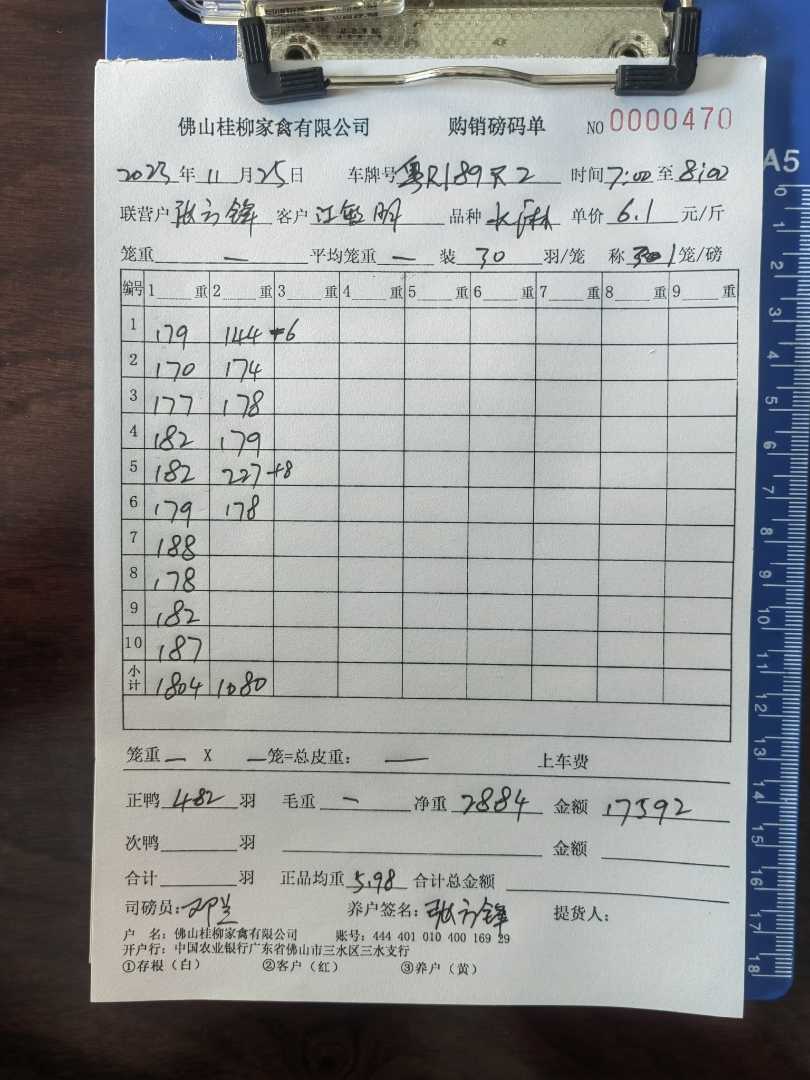 佛山桂柳家禽有限公司 购销磅码单 NO 0000470
2023年 11月25日 车牌号 粤R189 2 时间7:00至8:00
联营户 张 锋 客户 江 明 品种 单价 6.1 元/斤
笼重 — 平均笼重 — 装 30 羽/笼 称 笼/磅
编号 1 重 2 重 3 重 4 重 5 重 6 重 7 重 8 重 9 重
1 179 144 +6
2 170 174
3 177 178
4 182 179
5 182 227 +8
6 179 178
7 188
8 178
9 182
10 187
小计 1804 1080
笼重 — X — 笼=总皮重: — 上车费
正鸭 482 羽 毛重 — 净重 2884 金额 17592
次鸭 羽 金额
合计 羽 正品均重 5.98 合计总金额
司磅员: 邓兰 养户签名: 张 锋 提货人:
户 名: 佛山桂柳家禽有限公司 账号: 444 401 010 400 169 29
开户行: 中国农业银行广东省佛山市三水区三水支行
①存根（白） ②客户（红） ③养户（黄）
A5
0
1
2
3
4
5
6
7
8
9
10
11
12
13
14
15
16
17
18